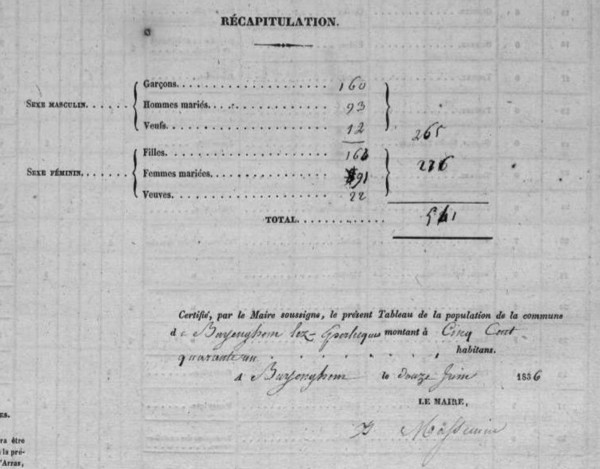 RÉCAPITULATION.
Garçons. 160
SEXE MASCULIN. Hommes mariés. 93
Veufs. 12 265
Filles. 163
SEXE FÉMININ. Femmes mariées. 91 276
Veuves. 22
TOTAL. 541
Certifié, par le Maire soussigné, le présent Tableau de la population de la commune
d e Bayenghem lez-Eperlecques montant à Cinq Cent
quarante un habitans.
A Bayenghem le douze Juin 1836
LE MAIRE,
ES.
ra être
la pré-
'Arras,